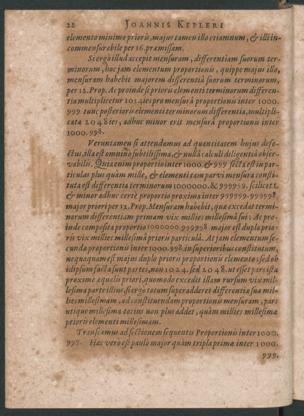 22 IOANNIS KEPLERI
elemento minimo prioris, major tamen illo etiamnum, & illi in-
commensurabile per 26. præmissam.
Si ergo illud accepit mensuram, differentiam suorum ter-
minorum, hoc jam elementum proportionis, quippe majus illo,
mensuram habebit majorem differentiâ suorum terminorum,
per 15. Prop. Ac proinde si prioris elementi terminorum differen-
tia multiplicetur 1024ies pro mensurâ proportionis inter 1000.
999. tunc posterioris elementi terminorum differentia, multipli-
cata 2048ies, adhuc minor erit mensurâ proportionis inter
1000. 998.
Veruntamen si attendamus ad quantitatem hujus defe-
ctus, illa est omnino subtilissima, & nullâ calculi diligentiâ obser-
vabilis. Quia enim proportio inter 1000. & 999
ticulas plus quàm mille, & elementi tam parvi mensura consti-
tuta est differentia terminorum 1000000. & 999999. scilicet 1,
& minor adhuc certè proportio proxima inter 999999. 999998
majori priori per 12. Prop. Mensuram habebit, quæ excedat termi-
norum differentiam primam vix millies millesimâ sui: Ac pro-
inde composita proportio 1000000. 999998 major est dupla prio-
ris vix millies millesimâ prioris particulâ. At jam elementum se-
cundæ proportionis inter 1000. 998. in superioribus constitutum,
nequaquam est majus duplo prioris proportionis elemento; sed ob
id ipsum
proximè æqualis priori, quomodo excedit illam rursum vix mil-
lesima parte illius; si ergo totum superadderet differentia sua mil-
lies millesimam, ad constituendam proportionis mensuram, pars
utique millesima ejus non plus addet, quàm millies millesima
prioris elementi millesimam.
Transeamus ad sectionem sequentis Proportionis inter 1000.
997. Hæc verò est paulo major quàm tripla primæ inter 1000.
999.